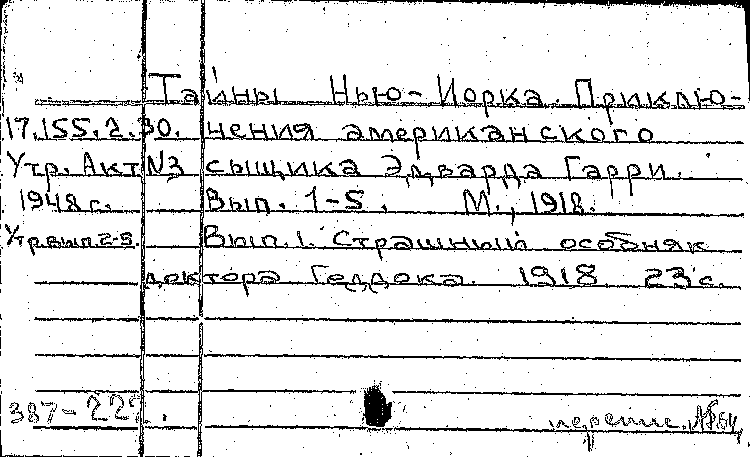 Тайны Нью-Йорка. Приклю-
17.155.2.30. чения американского
Утр. Акт №3 сыщика Эдварда Гарри.
1948 г. Вып. 1-5. М., 1918.
Утр. вып. 2-5. Вып. 1. Страшный особняк
доктора Геддока. 1918. 23 с.
387-222.
перепис.